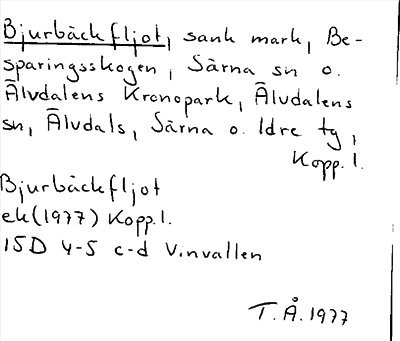 Bjurbäckfljot, sank mark, Be-
sparingsskogen, Särna sn o.
Älvdalens Kronopark, Älvdalens
sn, Älvdals, Särna o. Idre tg,
Kopp. l.
Bjurbäckfljot
ek(1977) Kopp.l.
15D 4-5 c-d Vinvallen
T.Å.1977